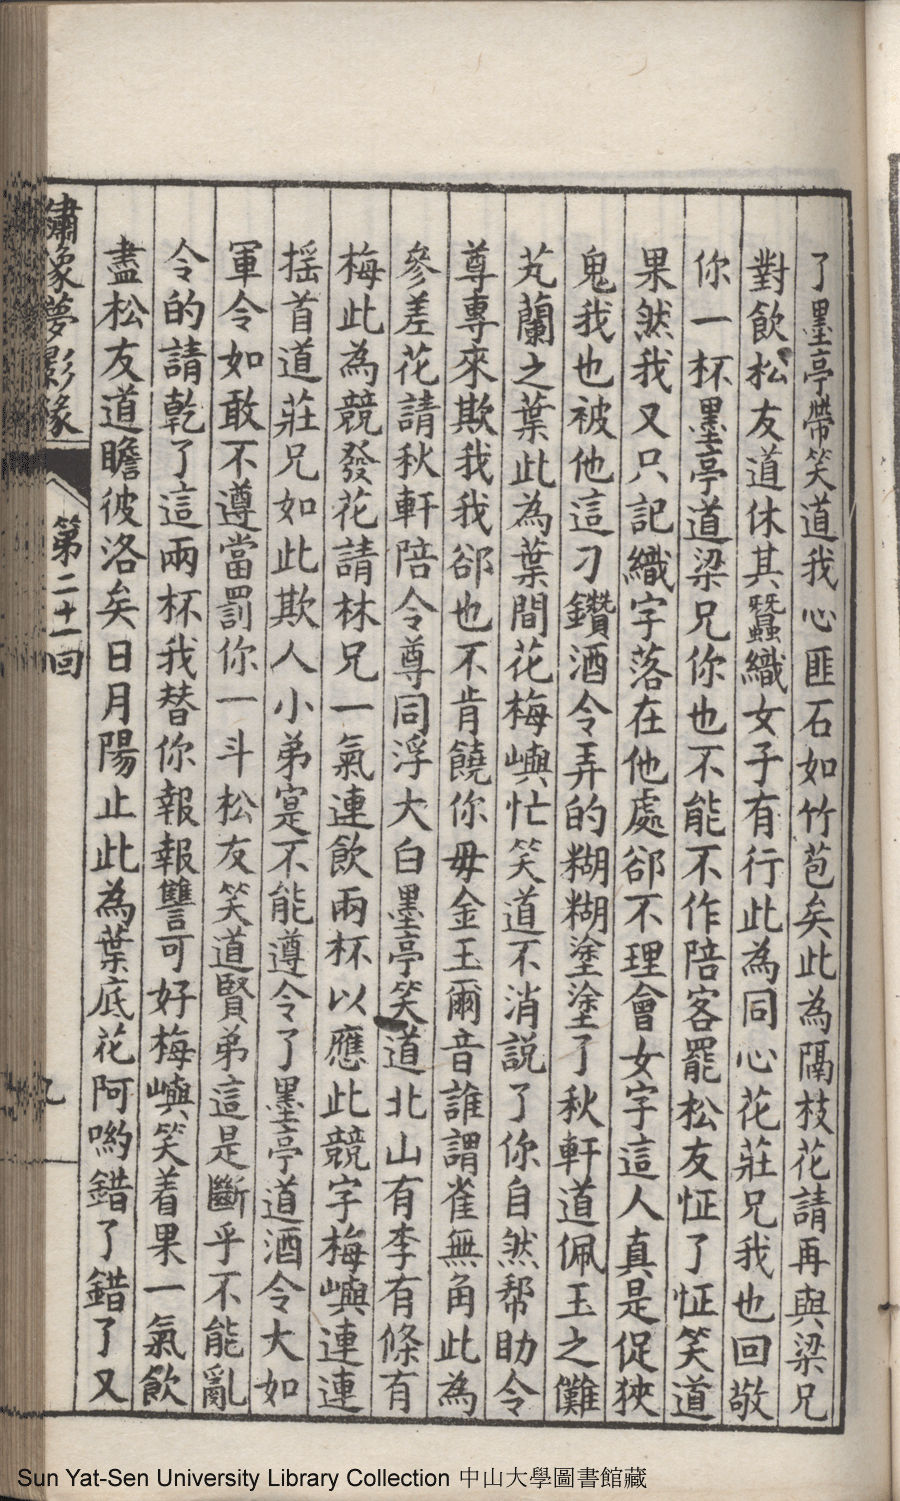 了墨亭帶笑道我心匪石如竹苞矣此為隔枝花請再與梁兄
對飲松友道休其蠶織女子有行此為同心花莊兄我也回敬
你一杯墨亭道梁兄你也不能不作陪客罷松友怔了怔笑道
果然我又只記織字落在他處郤不理會女字這人真是促狹
鬼我也被他這刁鑽酒令弄的糊糊塗塗了秋軒道佩玉之儺
芄蘭之葉此為葉間花梅嶼忙笑道不消說了你自然帮助令
尊專來欺我我郤也不肯饒你毋金玉爾音誰謂雀無角此為
參差花請秋軒陪令尊同浮大白墨亭笑道北山有李有條有
梅此為競發花請林兄一氣連飲兩杯以應此競字梅嶼連連
摇首道莊兄如此欺人小弟寔不能遵令了墨亭道酒令大如
軍令如敢不遵當罰你一斗松友笑道賢弟這是斷乎不能亂
令的請乾了這兩杯我替你報報讐可好梅嶼笑着果一氣飲
盡松友道瞻彼洛矣日月陽止此為葉底花阿喲錯了錯了又
繡像夢影緣
第二十一回
九
Sun Yat-Sen University Library Collection 中山大學圖書館藏